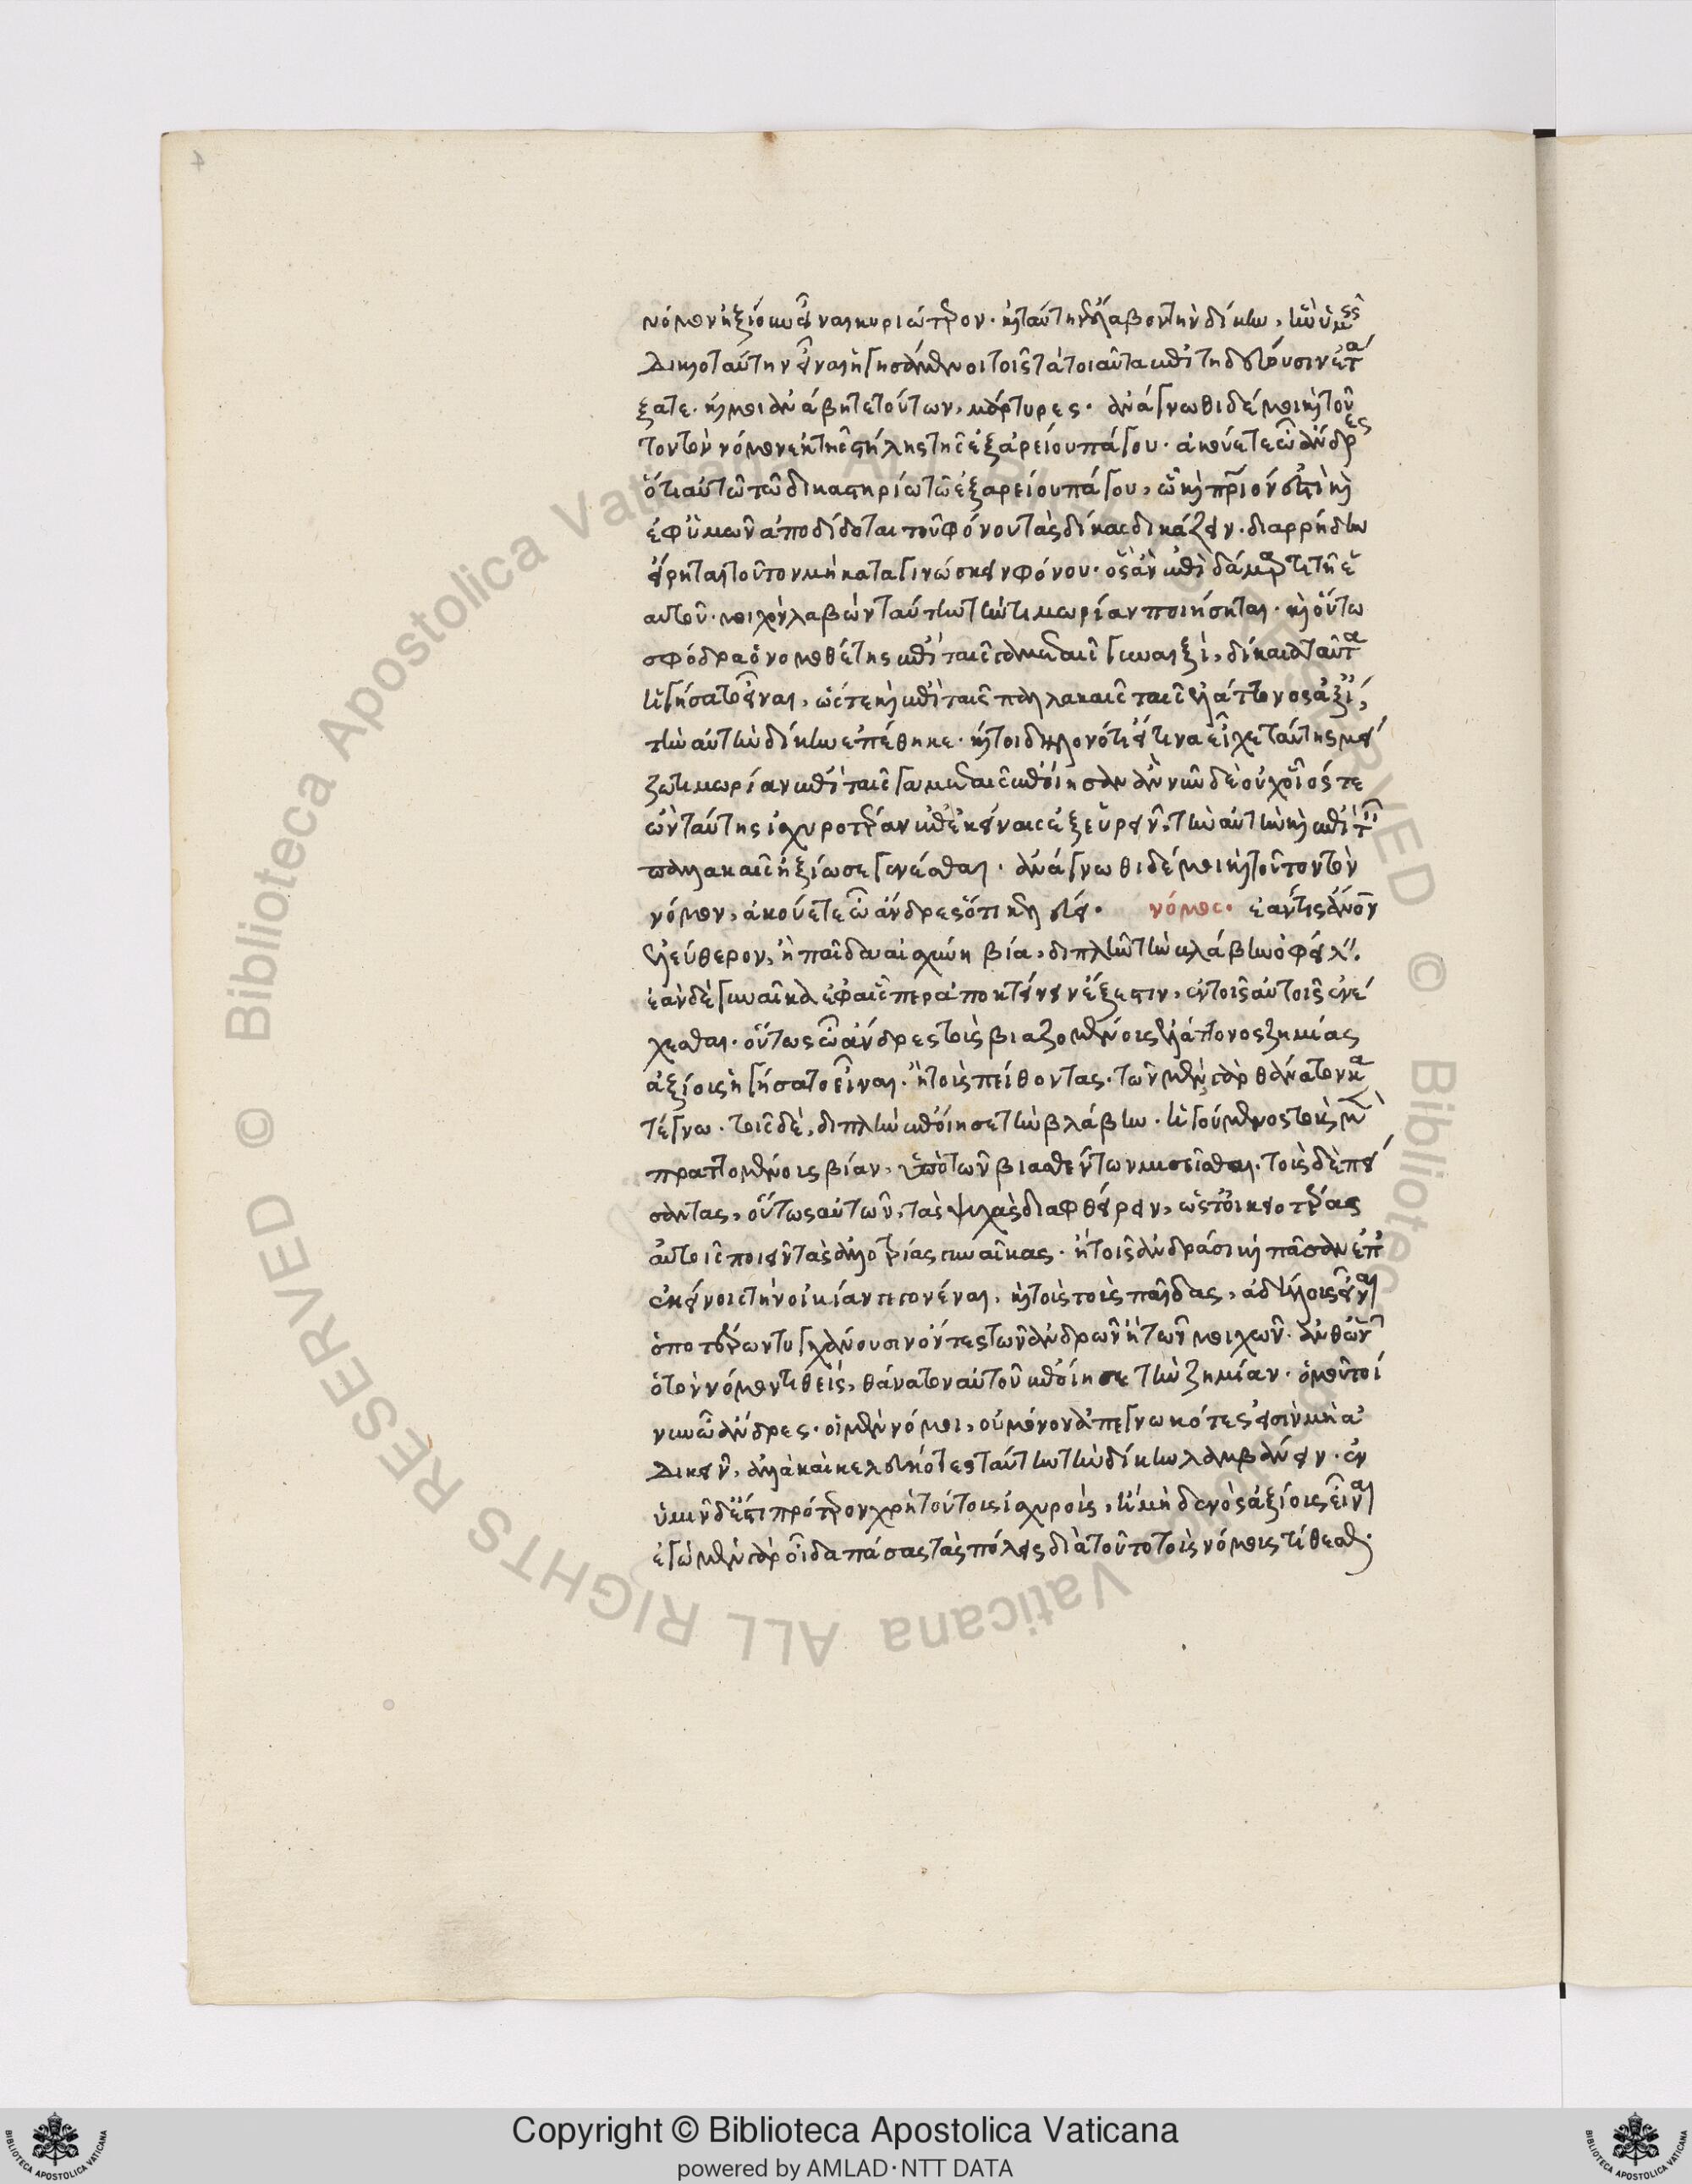 4
νόμον ἠξίουν εἶναι κυριώτερον. καὶ ταύτην ἔλαβον τὴν δίκην, ἣν ὑμεῖς
δικαιοτάτην εἶναι ἡγησάμενοι τοῖς τὰ τοιαῦτα ἐπιτηδεύουσιν ἐτά
ξατε. καί μοι ἀνάβητε τούτων, μάρτυρες. ἀνάγνωθι δέ μοι καὶ τοῦ
τον τὸν νόμον ἐκ τῆς στήλης τῆς ἐξ ἀρείου πάγου. ἀκούετε ὦ ἄνδρες
ὅτι αὐτῶ τῶ δικαστηρίω τῶ ἐξ ἀρείου πάγου, ὧ καὶ πάτριόν ἐστι καὶ
ἐφ' ὑμῶν ἀποδίδοται τοῦ φόνου τὰς δίκας δικάζειν. διαρρήδην
εἴρηται τοῦτον μὴ καταγινώσκειν φόνου. ὃς ἂν ἐπὶ δάμαρτι τῆ ἑ
αυτοῦ. μοιχὸν λαβὼν ταύτην τὴν τιμωρίαν ποιήσηται. καὶ οὕτω
σφόδρα ὁ νομοθέτης ἐπὶ ταῖς γαμεταῖς γυναιξὶ, δίκαια ταῦτα
ἡγήσατο εἶναι, ὥστε καὶ ἐπὶ ταῖς παλλακαῖς ταῖς ἐλάττονος ἀξί,
τὴν αὐτὴν δίκην ἐπέθηκε. καίτοι δῆλον ὅτι εἴ τινα εἶχε ταύτης μεί
ζω τιμωρίαν ἐπὶ ταῖς γαμεταῖς ἐποίησεν ἂν νῦν δὲ οὐχ οἷός τε
ὢν ταύτης ἰσχυροτέραν ἐπ' ἐκείναις ἐξευρεῖν, τὴν αὐτὴν καὶ ἐπὶ ταῖς
παλλακαῖς ἠξίωσε γενέσθαι. ἀνάγνωθι δέ μοι καὶ τοῦτον τὸν
νόμον, ἀκούετε ὦ ἄνδρες ὅτι κελεύει. νόμος. ἐάν τις ἄνον
ἐλεύθερον, ἢ παῖδα αἰσχύνη βία, διπλῆν τὴν βλάβην ὀφείλ.
ἐὰν δὲ γυναῖκα ἐφ' αἷσπερ ἀποκτείνειν ἔξεστιν, ἐν τοῖς αὐτοῖς ἐνέ
χεσθαι. οὕτως ὦ ἄνδρες τοὺς βιαζομένους ἐλάττονος ζημίας
ἀξίους ἡγήσατο εἶναι. ἢ τοὺς πείθοντας. τῶν μὲν γὰρ θάνατον κα
τέγνω. τοῖς δὲ, διπλῆν ἐποίησε τὴν βλάβην. ἡγούμενος τοὺς μὲν
πραττομένους βίαν, ὑπὸ τῶν βιασθέντων μισεῖσθαι. τοὺς δὲ πεί
σαντας, οὕτως αὐτῶν, τὰς ψυχὰς διαφθείρειν, ὥστ' οἰκειοτέρας
αὐτοῖς ποιεῖν τὰς ἀλλοτρίας γυναῖκας. ἢ τοῖς ἀνδράσι καὶ πᾶσαν ἐπ'
ἐκείνοις τὴν οἰκίαν γεγονέναι, καὶ τοὺς παῖδας, ἀδήλους εἶναι
ὁποτέρων τυγχάνουσιν ὄντες τῶν ἀνδρῶν ἢ τῶν μοιχῶν. ἀνθ' ὧν
ὁ τὸν νόμον τιθεὶς, θάνατον αὐτοῦ ἐποίησε τὴν ζημίαν. ἐμοῦ τοί
νυν ὦ ἄνδρες. οἱ μὲν νόμοι, οὐ μόνον ἀπεγνωκότες εἰσὶν μὴ ἀ
δικεῖν, ἀλλὰ καὶ κεκελευκότες ταύτην τὴν δίκην λαμβάνειν. ἐν
ὑμῖν δέ ἐστι πρότερον χρὴ τούτους ἰσχυροὺς, ἢ μηδενὸς ἀξίους εἶναι
ἐγὼ μὲν γὰρ οἶδα πάσας τὰς πόλεις διὰ τοῦτο τοὺς νόμους τίθεσθαι.
© Biblioteca Apostolica Vaticana ALL RIGHTS RESERVED
© Biblioteca Apostolica Vaticana ALL RIGHTS RESERVED
Copyright © Biblioteca Apostolica Vaticana
powered by AMLAD·NTT DATA